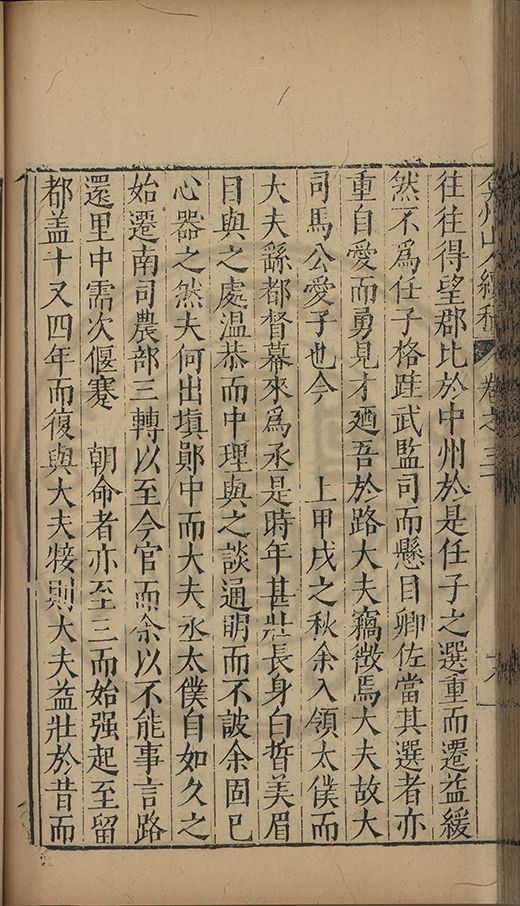 弇州山人續稿 卷之三
往往得望郡比於中州於是任子之選重而遷益緩
然不爲任子格跓武監司而懸目卿佐當其選者亦
重自愛而勇見才廼吾於路大夫竊徵焉大夫故大
司馬公愛子也今 上甲戌之秋余入領太僕而
大夫繇都督幕來爲丞是時年甚壯長身白皙美眉
目與之處温恭而中理與之談通明而不詖余固已
心器之然夫何出塡鄖中而大夫丞太僕自如久之
始遷南司農部三轉以至今官而余以不能事言路
還里中需次偃蹇 朝命者亦至三而始强起至留
都盖十又四年而復與大夫接則大夫益壯於昔而